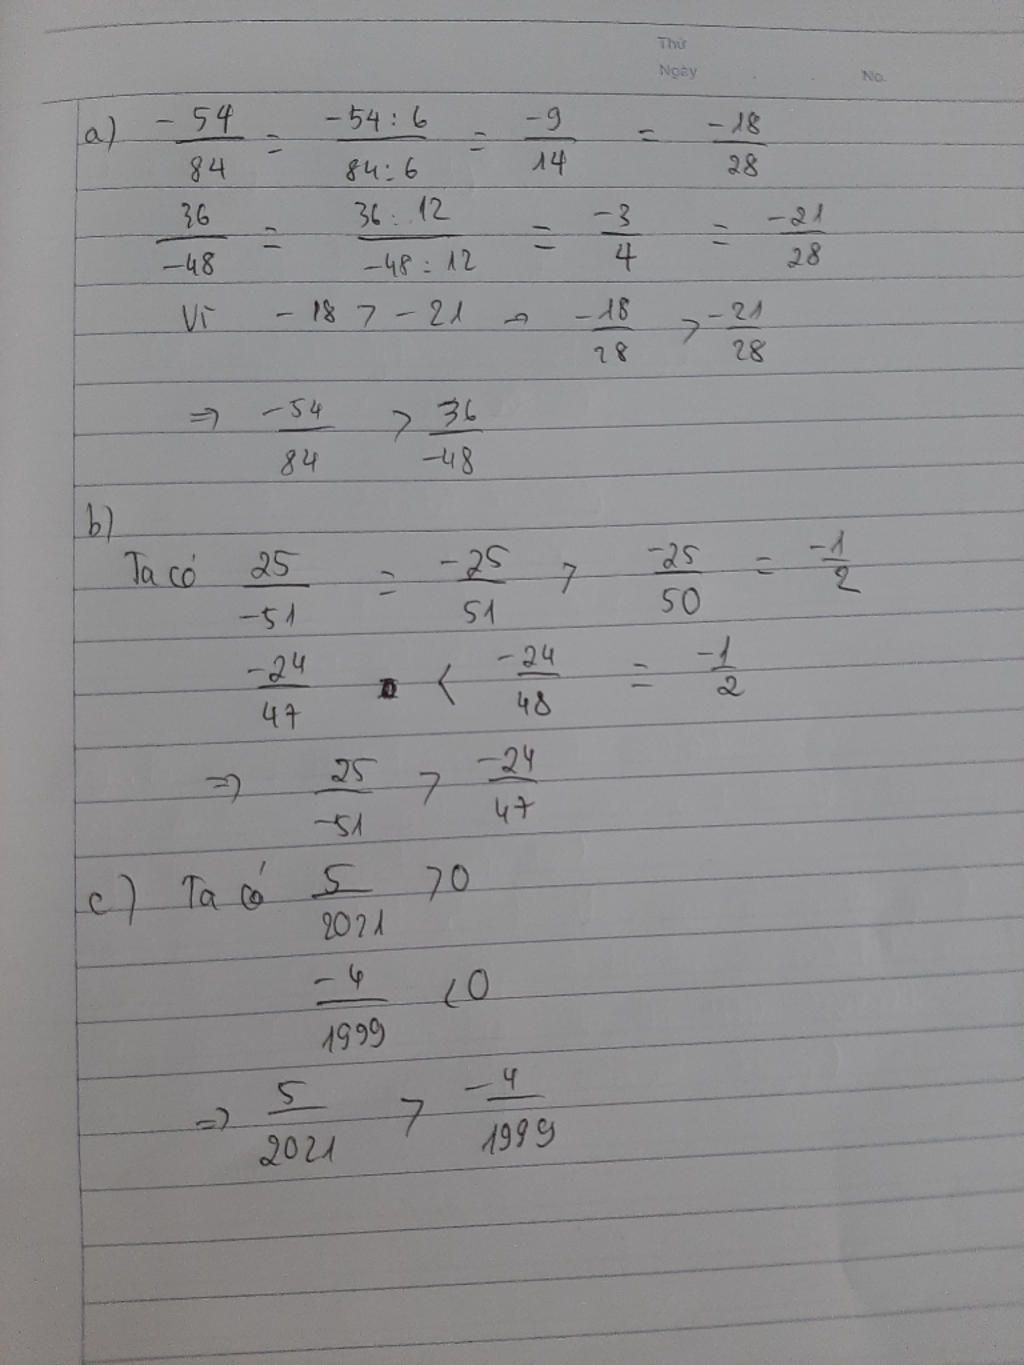 Thứ
Ngày . . No.
a) -54/84 = -54:6/84:6 = -9/14 = -18/28
36/-48 = 36:12/-48:12 = -3/4 = -21/28
Vì -18 > -21 → -18/28 > -21/28
⇒ -54/84 > 36/-48
b)
Ta có 25/-51 = -25/51 > -25/50 = -1/2
-24/47 < -24/48 = -1/2
⇒ 25/-51 > -24/47
c) Ta có 5/2021 >0
-4/1999 <0
⇒ 5/2021 > -4/1999